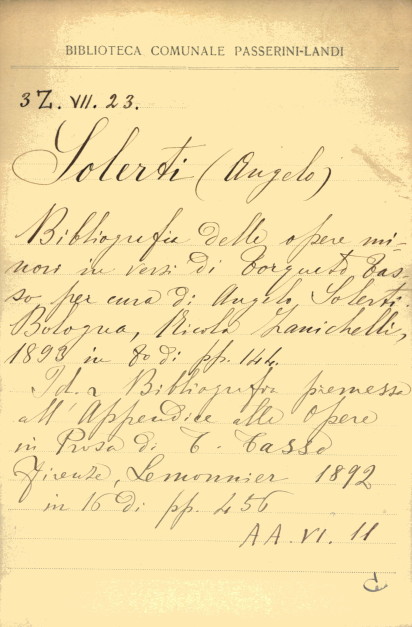 BIBLIOTECA COMUNALE PASSERINI-LANDI
3Z. VII. 23.
Solerti (Angelo)
Bibliografia delle opere mi-
nori in versi di Torquato Tas-
so, per cura di Angelo Solerti.
Bologna, Nicola Zanichelli,
1893 in 8o di pp. 144.
Id. Bibliografia premessa
all'Appendice alle Opere
in Prosa di T. Tasso
Firenze, Lemonnier 1892
in 16 di pp. 456
AA. VI. 11